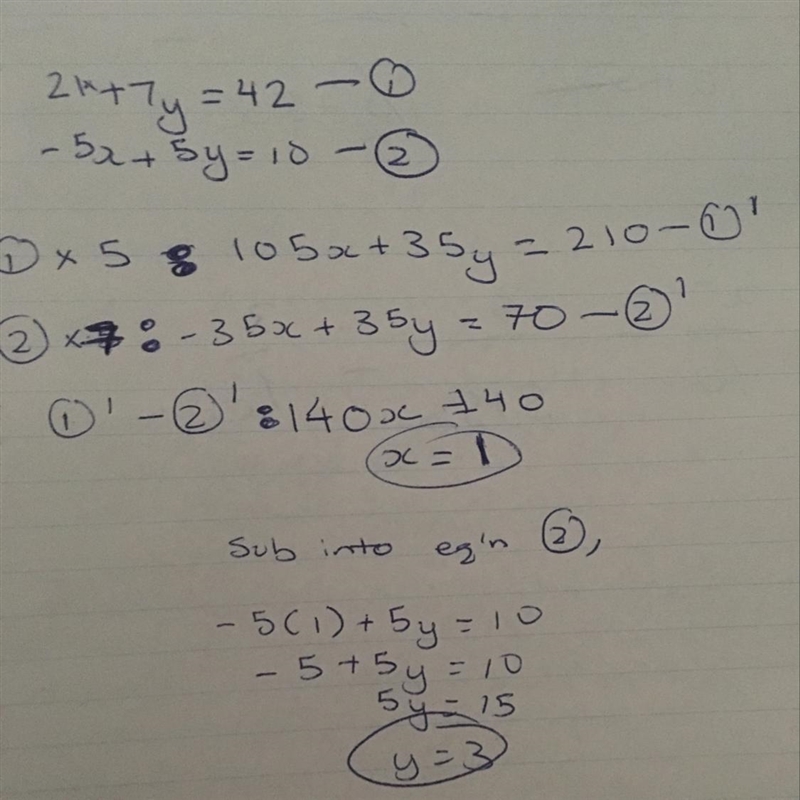 21x+7y=42 — ①
-5x+5y=10 — ②
① × 5 : 105x+35y=210 — ①'
② ×7 : -35x+35y=70 — ②'
①' - ②' : 140x =140
x=1
Sub into eq'n ②,
-5(1)+5y=10
-5+5y=10
5y=15
y=3